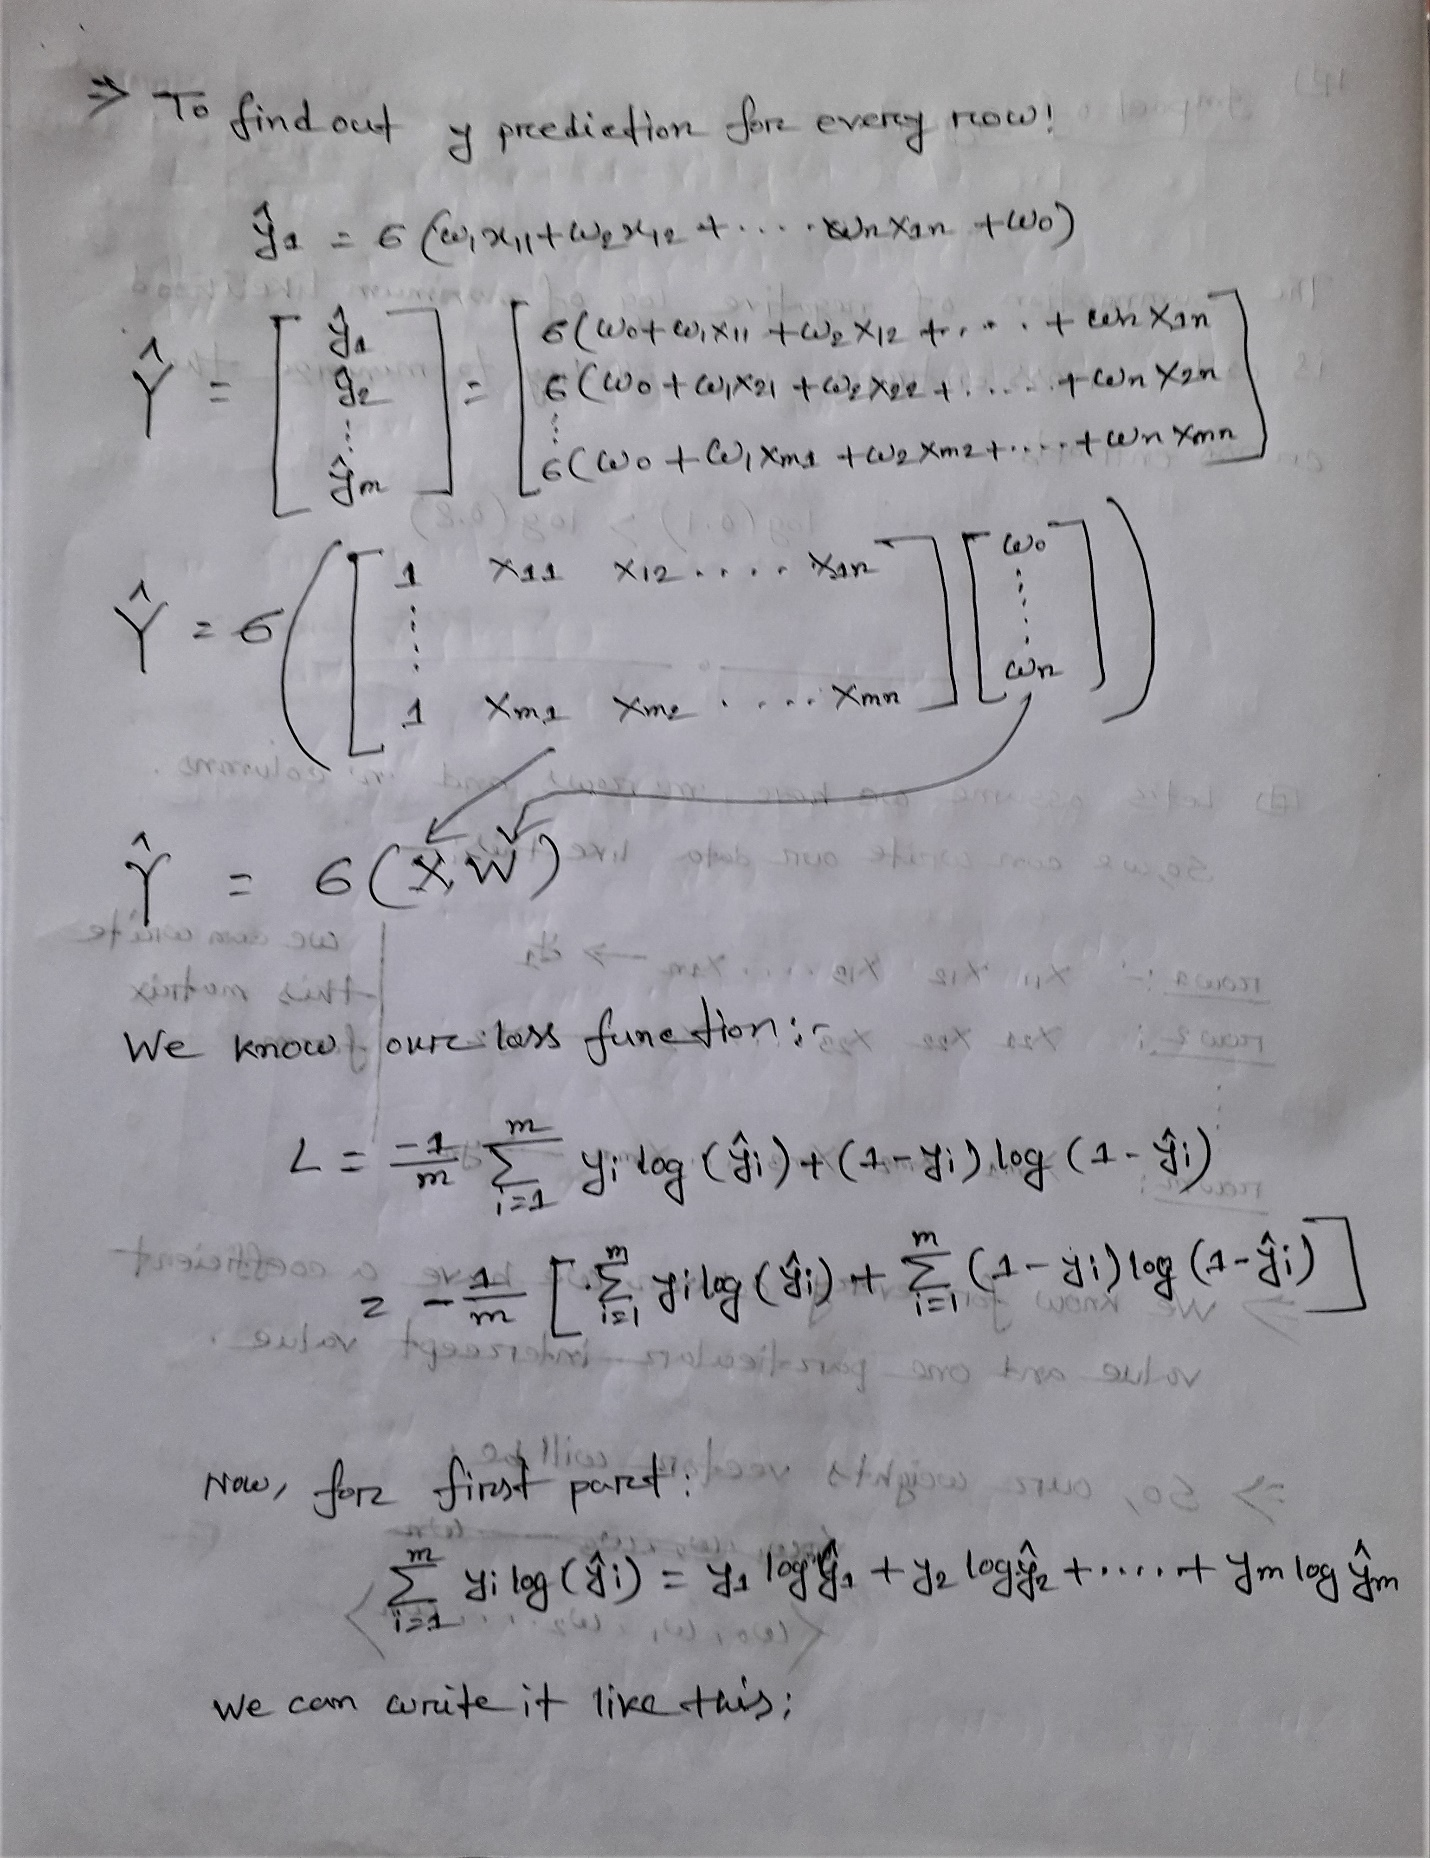 ⇒ To find out y prediction for every row!
ŷ1 = σ(w1x11 + w2x12 + .... wnx1n + w0)
Ŷ = [ŷ1 ŷ2 ⋮ ŷm] = [σ(w0 + w1x11 + w2x12 + .... + wnx1n
σ(w0 + w1x21 + w2x22 + ..... + wnx2n
⋮
σ(w0 + w1xm1 + w2xm2 + ..... + wnxmn]
Ŷ = σ([1 x11 x12 .... x1n
⋮
1 xm1 xm2 ..... xmn] [w0 ⋮ wn])
Ŷ = σ(XW)
We know our loss function:-
L = -1/m ∑_{i=1}^{m} yi log(ŷi) + (1-yi) log(1-ŷi)
= -1/m [∑_{i=1}^{m} yi log(ŷi) + ∑_{i=1}^{m} (1-yi) log(1-ŷi)]
Now, for first part:
∑_{i=1}^{m} yi log(ŷi) = y1 log ŷ1 + y2 log ŷ2 + ..... + ym log ŷm
We can write it like this;